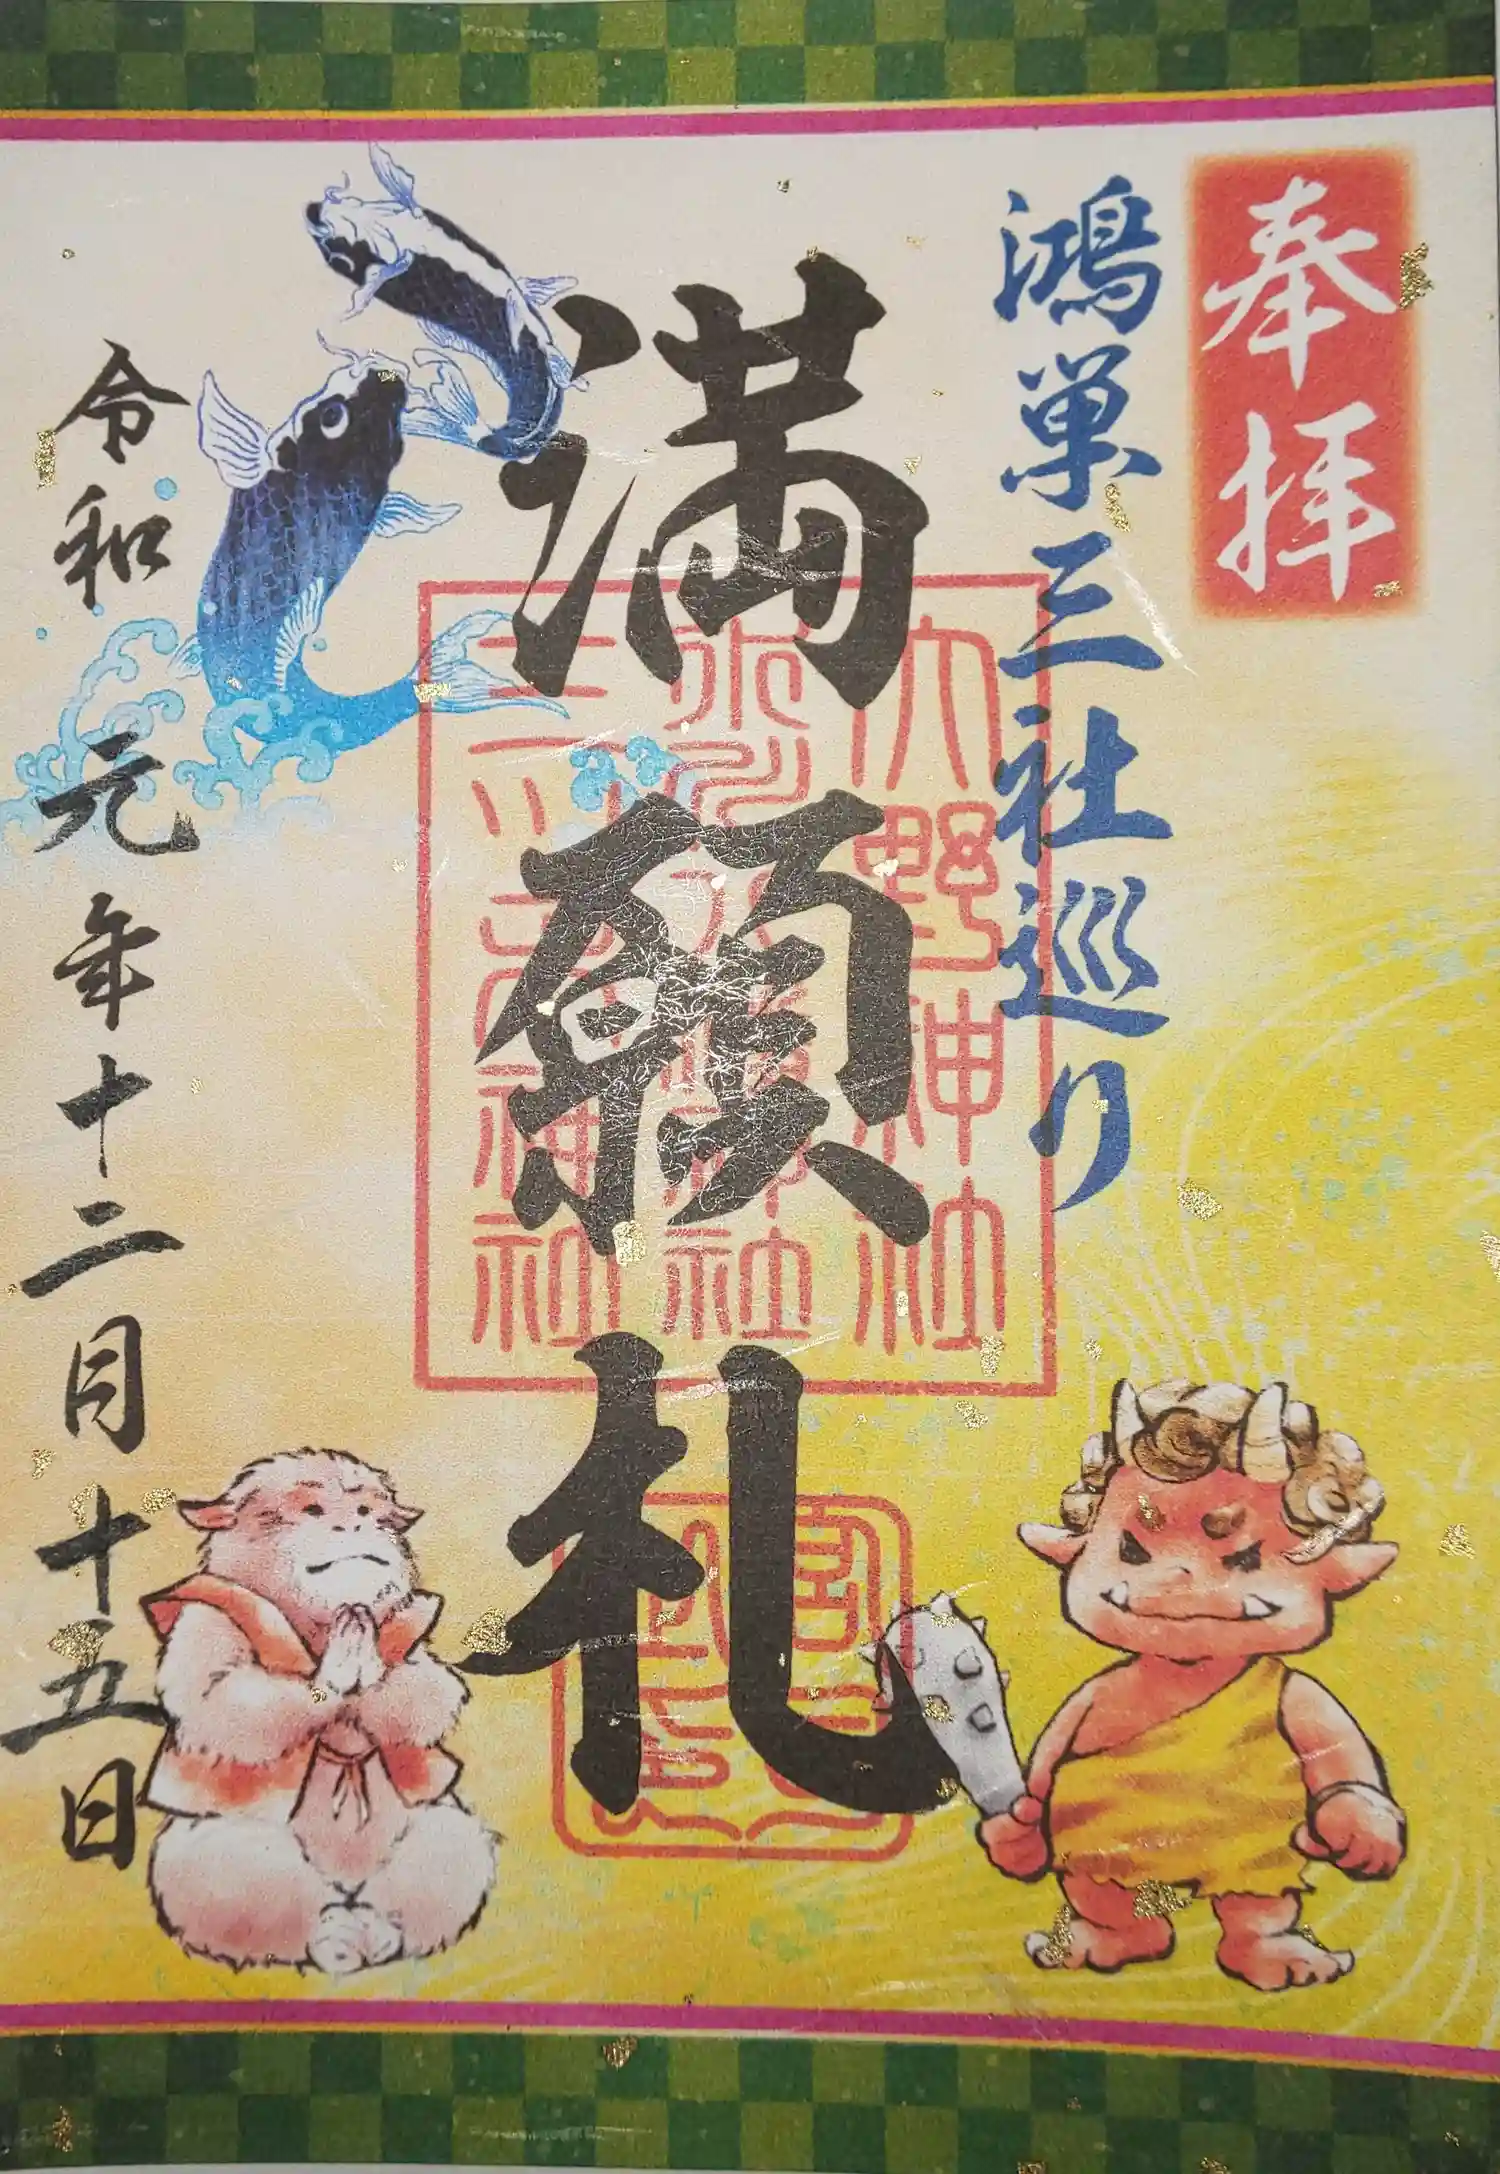 奉拝
鴻巣三社巡り
満願札
大野神社
氷川八幡神社
三ツ木神社
令和元年十二月十五日